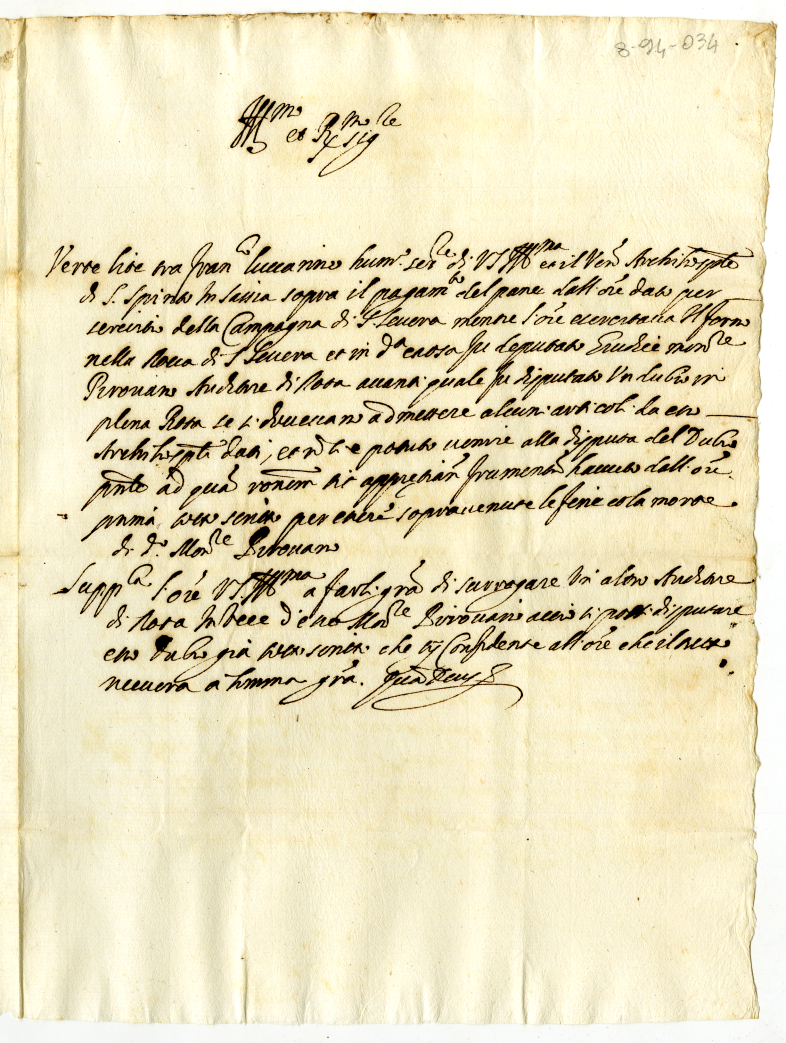 8-94-034
Ill.mo et R.mo Sig.re
Verte lite tra Fran.co luccarino hum.e ser.re di VS Ill.ma et il Ven. Archihospitle
di S. Spirito In Sassia sopra il pagam.to del pane dall' ore dato per
servitio della Campagna di S. Severa mentre l'ore esercitava Il forno
nella Rocca di S. Severa et in d.a causa fu deputato Giudice mon.re
Pirovano Auditore di Rota avanti quale fu disputato Un dubio in
plena Rota se si dovessero admettere alcuni articoli da esso
Archihospitle dati, et non si è potuto venire alla disputa del Dubio
pnte ad quam frumenti havuto dall' ore
prima per essere sopravenute le ferie e la morte
di d.o Mon.re Pirovano
Supp.ca l'ore VS Ill.ma a farli gra di surrogare Un altro Auditore
di Rota In vece d'esso Mon.re Pirovani acciò si possi disputare
esso Dubio già che Confidente all' ore che il tutto
receverà a somma gra. Qua Deus